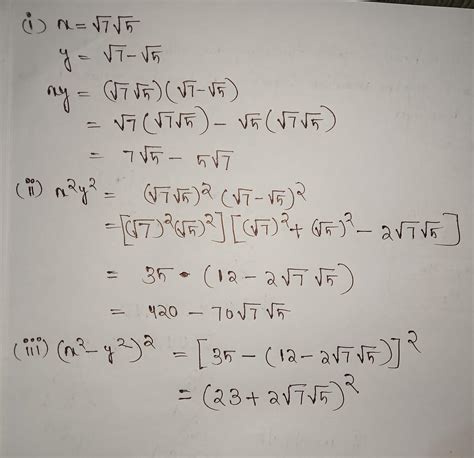 (i) x = √7√5
y = √7 - √5
xy = (√7√5)(√7-√5)
= √7(√7√5) - √5(√7√5)
= 7√5 - 5√7
(ii) x²y² = (√7√5)² (√7-√5)²
= [(√7)²(√5)²] [(√7)² + (√5)² - 2√7√5]
= 35 · (12 - 2√7√5)
= 420 - 70√7√5
(iii) (x² - y²)² = [35 - (12 - 2√7√5)]²
= (23 + 2√7√5)²